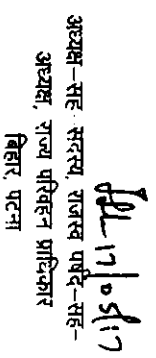 17/05/17
अध्यक्ष–सह–सदस्य, राजस्व पर्षद–सह–
अध्यक्ष, राज्य परिवहन प्राधिकार
बिहार, पटना